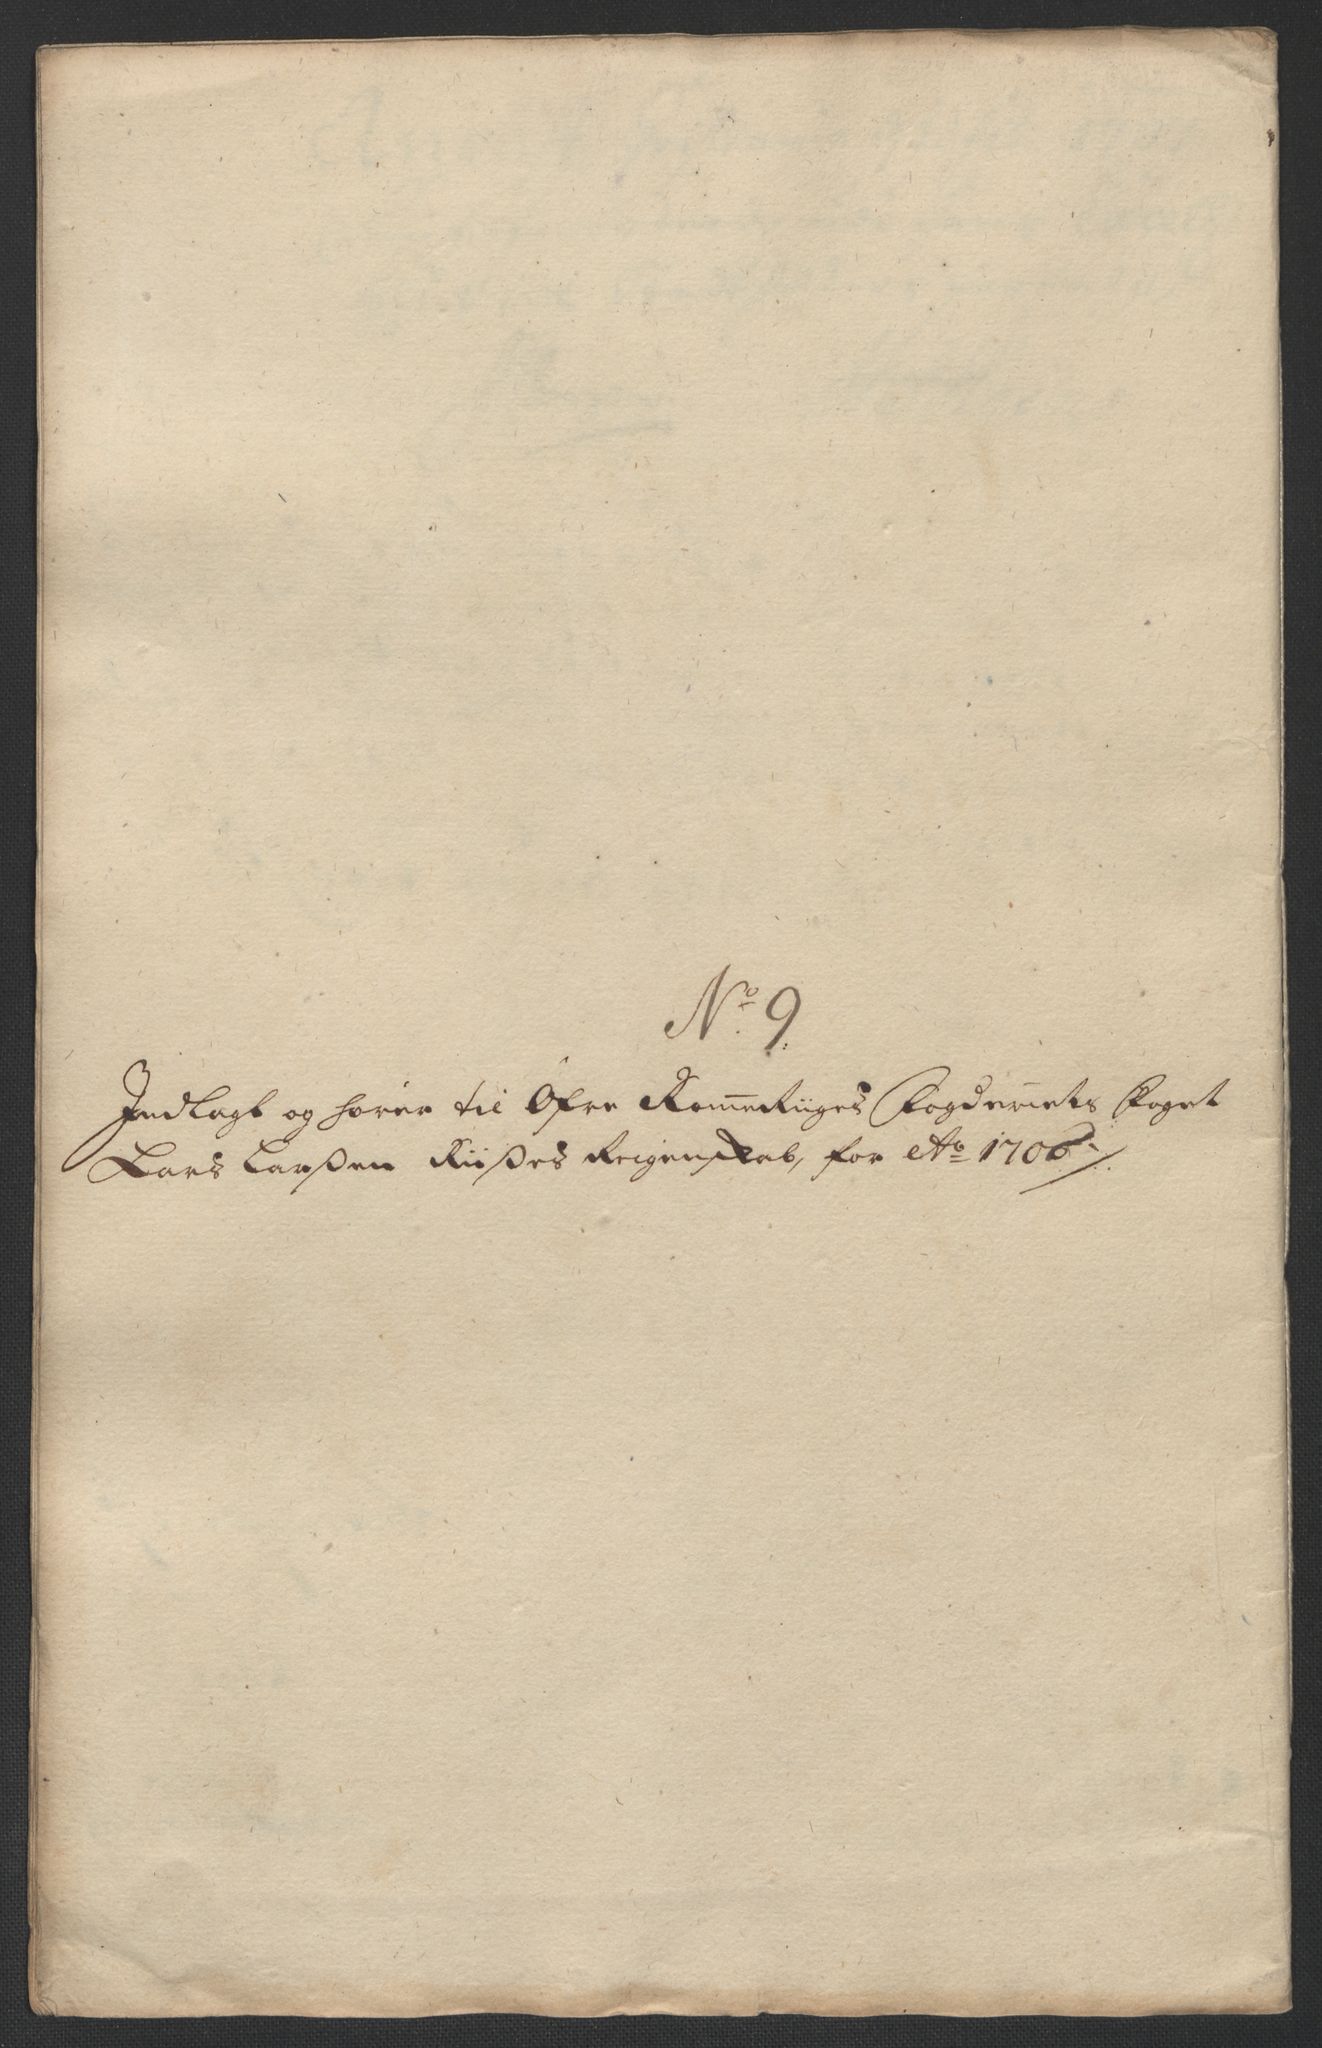 No 9
Indlagt og hører til Öfre Rom̅eRiiges Fogderiets Foget
Lars Larßen Riißes Reigenskab, for Ao 1706